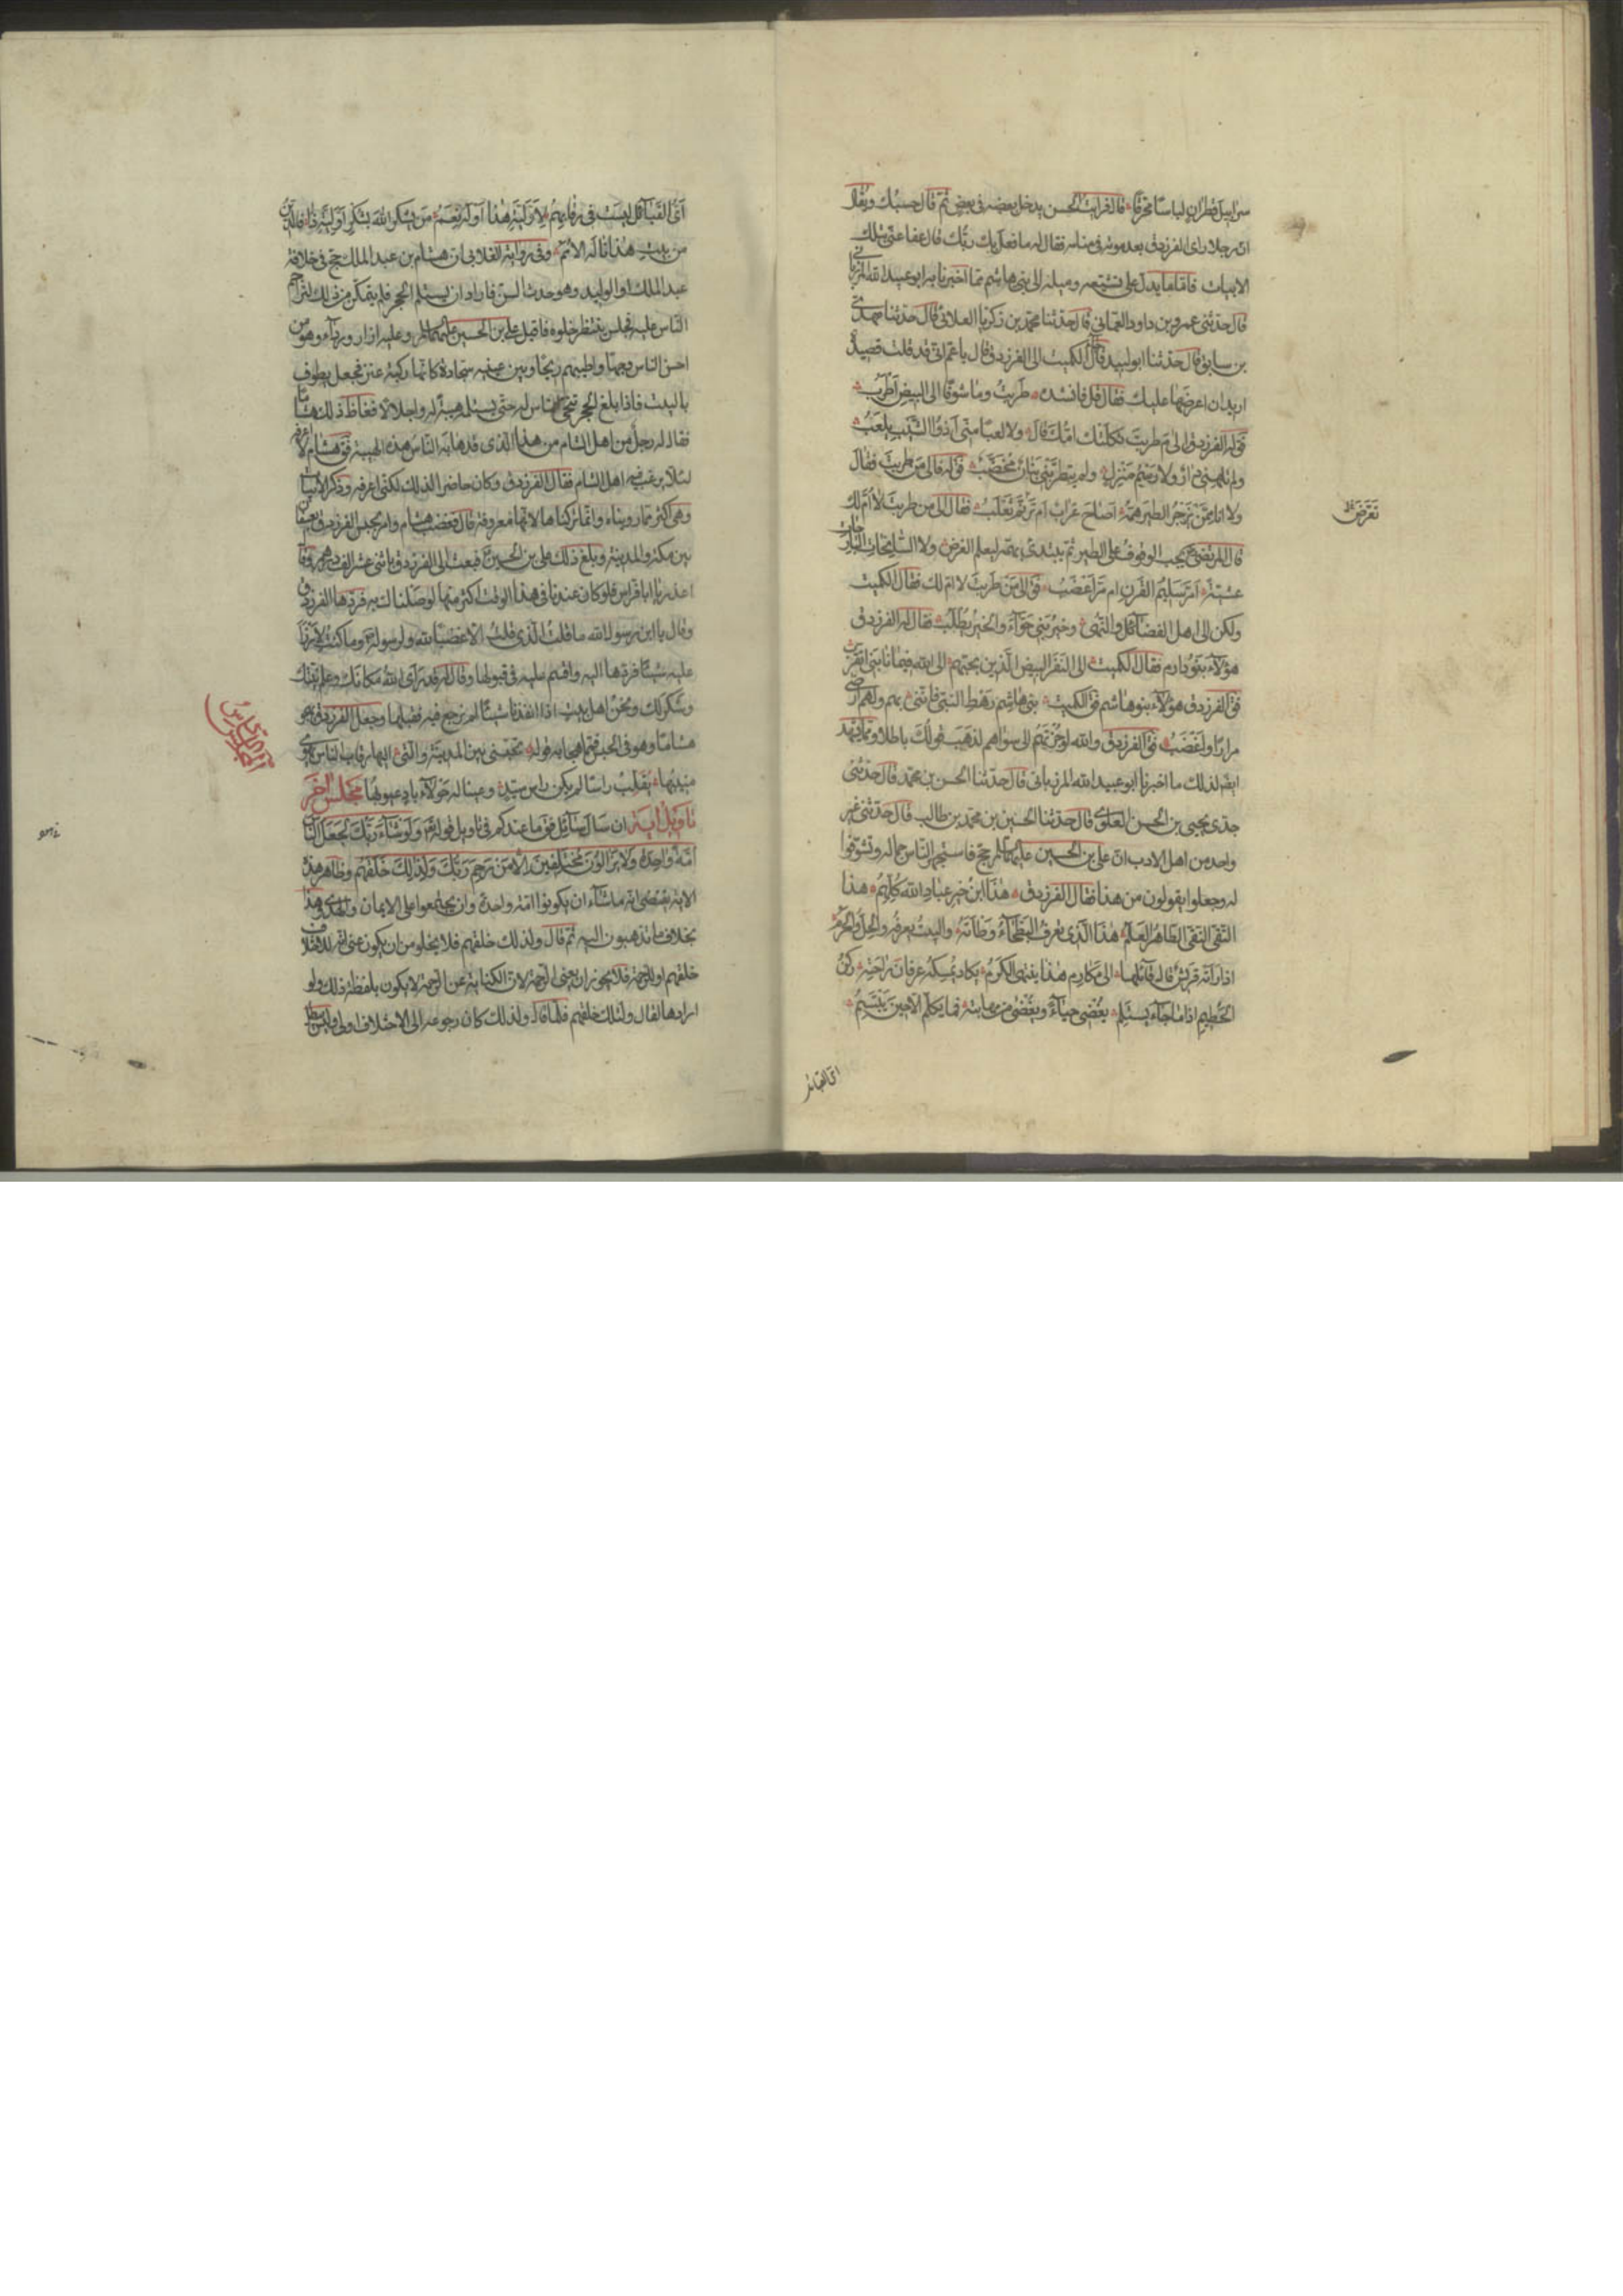 سرابيل قطران لباسا محرقا قال فرايت الحسن يدخل بعضه في بعض ثم قال حسبك ويقال
ان رجلا راى الفرزدق بعد موته في منامه فقال له ما فعل بك ربك قال عفا عني بتلك
الابيات فاما ما يدل على تشيعه وميله الى بني هاشم فما اخبرنا به ابو عبيد الله المرزباني
قال حدثني عمرو بن داود العماني قال حدثنا محمد بن زكريا الغلابي قال حدثنا مهدي
بن سابق قال حدثنا ابو لبيد قال الكميت الى الفرزدق فقال يا عم اني قد قلت قصيدة
اريد ان اعرضها عليك فقال قل فانشده طَرِبتُ وما شوقًا الى البيض أطرَبُ
فق له الفرزدق الى م طربت ثكلتك امك قال ولا لعبا مني اذو الشيب يلعَبُ
ولم تلهني دار ولا رسم منزل ولم يتطربني بنان مخضب فق له فالى من طربت فقال
ولا انا ممن يزجر الطير همه اصاح غراب ام تعرض ثعلب فقال الى من طربت لا ام لك
تعرض
قال المرتضى يجب الوقوف على الطير ثم يبتدئ بهمه ليعلم الغرض ولا السانحات البارحات
عشية امر سليم القرن ام مر اعضب فق الى من طربت لا ام لك فقال الكميت
ولكن الى اهل الفضائل والنهى وخير بني حواء والخير يطلب فقال له الفرزدق
هؤلاء بنو دارم فقال الكميت الى النفر البيض الذين بحبهم الى الله فيما نابني اتقرب
فق الفرزدق هؤلاء بنو هاشم فق الكميت بني هاشم رهط النبي فانني بهم ولهم ارضى
مرارا واغضب فق الفرزدق والله لو جزتهم الى سواهم لذهب قولك باطلا ومما يشهد
ايضا لذلك ما اخبرنا ابو عبيد الله المرزباني قال حدثنا الحسن بن محمد قال حدثني
جدي يحيى بن الحسن العلوي قال حدثنا الحسين بن محمد بن طالب قال حدثني غير
واحد من اهل الادب ان علي بن الحسين عليهما السلم حج فاستجهر الناس جماله وتشوفوا
له وجعلوا يقولون من هذا فقال الفرزدق هذا ابن خير عباد الله كلهم هذا
التقي النقي الطاهر العلم هذا الذي تعرف البطحاء وطأته والبيت يعرفه والحل والحرم
اذا رأته قريش قال قائلها الى مكارم هذا ينتهي الكرم يكاد يمسكه عرفان راحته ركن
الحطيم اذا ما جاء يستلم يغضي حياء ويغضى من مهابته فما يكلم الا حين يبتسم
اى القبائل
أى القبائل ليست في رقابهم لأولية هذا أو له نعم من يشكر الله يشكر اولية ذا فالدين
من بيت هذا ناله الأمم وفي رواية الغلابي ان هشام بن عبد الملك حج في خلافة
عبد الملك او الوليد وهو حدث السن فاراد ان يستلم الحجر فلم يتمكن من ذلك لتزاحم
الناس عليه فجلس ينتظر خلوه فاقبل علي بن الحسين عليهما السلم وعليه ازار ورداء وهو من
احسن الناس وجها واطيبهم ريحا وبين عينيه سجادة كانها ركبة عنز فجعل يطوف
بالبيت فاذا بلغ الحجر تنحى الناس له حتى يستلمه هيبة له واجلالا فغاظ ذلك هشاما
فقال له رجل من اهل الشام من هذا الذي قد هابه الناس هذه الهيبة فق هشام لا اعرفه
لئلا يرغب فيه اهل الشام فقال الفرزدق وكان حاضرا لذلك لكني اعرفه وذكر الابيات
وهي اكثر مما رويناه وانما تركناها لانها معروفة قال فغضب هشام وامر بحبس الفرزدق بعسفان
بين مكة والمدينة وبلغ ذلك علي بن الحسين فبعث الى الفرزدق باثنى عشر الف درهم وقال
اعذر يا ابا فراس فلو كان عندنا في هذا الوقت اكثر منها لوصلناك به فردها الفرزدق
وقال يا ابن رسول الله ما قلت الذي قلت الا غضبا لله ولرسوله وما كنت لارزأ
عليه شيئا فردها اليه واقسم عليه في قبولها وقال له قد رأى الله مكانك وعلم نيتك
وشكر لك ونحن اهل بيت اذا انفذنا شيئا لم نرجع فيه فقبلها وجعل الفرزدق يهجو
هشاما وهو في الحبس فمما هجاه به قوله تحبسني بين المدينة والتي اليها رقاب الناس يهوي
منيبها يقلب راسا لم يكن راس سيد وعينا له حولاء باد عيوبها مجلس آخر
تأويل آية ان سال سائل فق ما عندكم في تاويل قوله تع ولو شاء ربك لجعل الناس
امة واحدة ولا يزالون مختلفين الا من رحم ربك ولذلك خلقهم وظاهر هذه
الآية يقتضي انه ما شاء ان يكونوا امة واحدة وان يجتمعوا على الايمان والهدى وهذا
بخلاف ما تذهبون اليه ثم قال ولذلك خلقهم فلا يخلو من ان يكون عنى انه للاختلاف
خلقهم او للرحمة فلا يجوز ان يعني الرحمة لان الكناية عن الرحمة لا يكون بلفظة ذلك ولو
ارادها لقال ولتلك خلقهم فلما قال ولذلك كان رجوعه الى الاختلاف اولى وليس يبطل